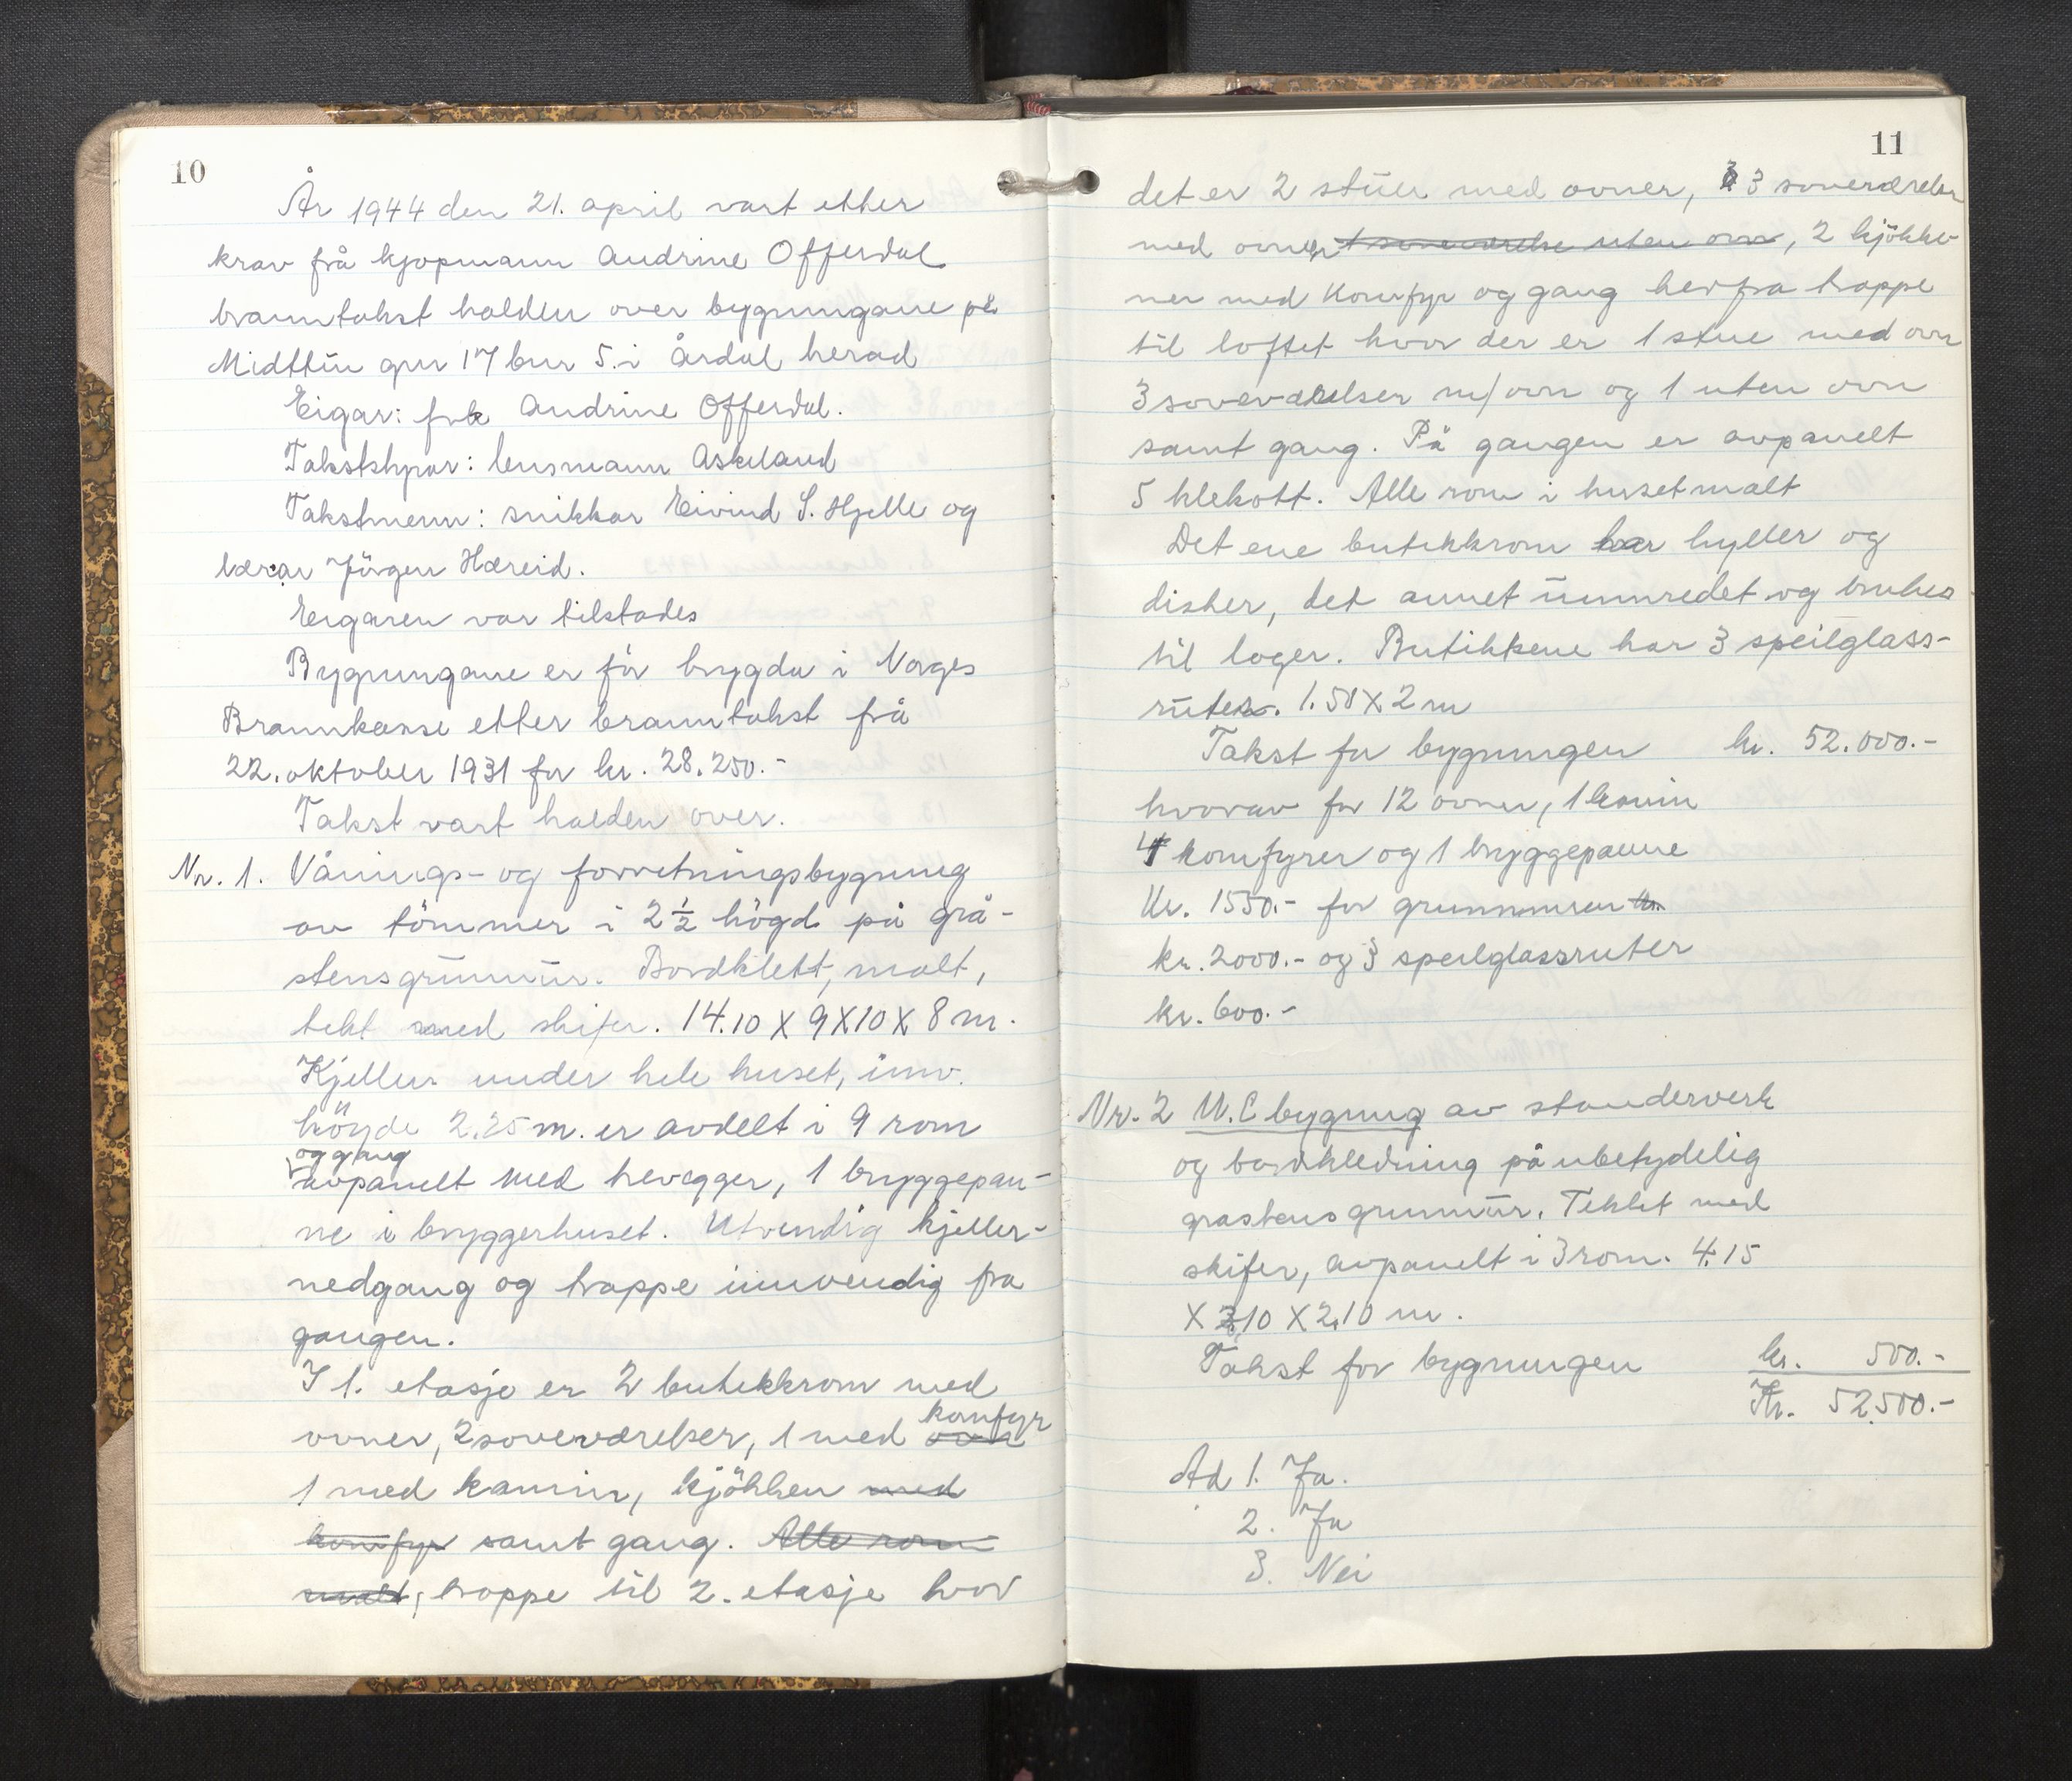 10
År 1944 den 21. april vart etter
krav frå kjøpmann Andrine Offerdal
branntakst halden over bygningane på
Midttun gnr 17 bnr 5. i Årdal herad
Eigar: frk Andrine Offerdal.
Takststyrar: lensmann Askeland
Takstmenn: snikkar Eivind S. Hjelle og
lærar Jörgen Hæreid.
Eigaren var tilstades
Bygningane er för brygda i Norges
Brannkasse etter branntakst frå
22. oktober 1931 for kr. 28.250.-
Takst vart halden over.
Nr. 1. Vånings- og forretningsbygning
av tömmer i 2½ högd på grå-
stensgrunnmur. Bordklett, malt,
tekt med skifer. 14.10 X 9 X 10 X 8 m.
Kjeller under hele huset, innv.
höyde 2.25 m. er avdelt i 9 rom
og gang
avpanelt med hevegger, 1 bryggepan-
ne i bryggerhuset. Utvendig kjeller-
nedgang og trappe innvendig fra
gangen.
I 1. etasje er 2 butikkrom med
komfyr
ovner, 2 soveværelser, 1 med ovn
1 med kamin, kjökken med
komfyr samt gang. Alle rom
malt, trappe til 2. etasje hvor
11
det er 2 stuer med ovner, 3 soverærelser
med ovner 1 soveværelse uten ovn, 2 kjökke-
ner med komfyr og gang herfra trappe
til loftet hvor der er 1 stue med ovn
3 soveværelser m/ovn og 1 uten ovn
samt gang. På gangen er avpanelt
5 klekott. Alle rom i huset malt
Det ene butikkrom har hyller og
disker, det annet uinnredet og brukes
til lager. Butikkene har 3 speilglass-
ruter. 1.50 X 2 m
Takst for bygningen kr. 52.000.-
hvorav for 12 ovner, 1 kamin
4 komfyrer og 1 bryggepanne
Kr. 1550.- for grunnmuren kr.
kr. 2000.- og 3 speilglassruter
kr. 600.-
Nr. 2 W.C bygning av stenderverk
og bordkledning på ubetydelig
grastensgrunnmur. Tekket med
skifer, avpanelt i 3 rom. 4.15
X 3.10 X 2.10 m.
Takst for bygningen kr. 500.-
Kr. 52.500.-
Ad 1. Ja.
2. Ja
3. Nei